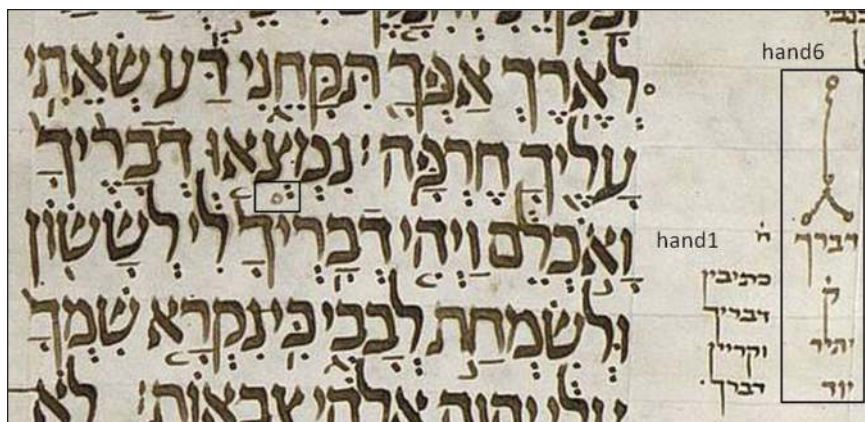 לְאֶרֶךְ אַפְּךָ תִּקָּחֵנִי דַּע שְׂאֵתִי
עָלֶיךָ חֶרְפָּה׃ נִמְצְאוּ דְבָרֶיךָ
וָאֹכְלֵם וַיְהִי דְבָרְיךָ לִי לְשָׂשׂוֹן
וּלְשִׂמְחַת לְבָבִי כִּי נִקְרָא שִׁמְךָ
עלי יהוה אלהי צבאות׃ לא
hand1
ח̇
כתיבין
דבריך
וקריין
דברך
hand6
דברך
ק̇
יתיר
יוד